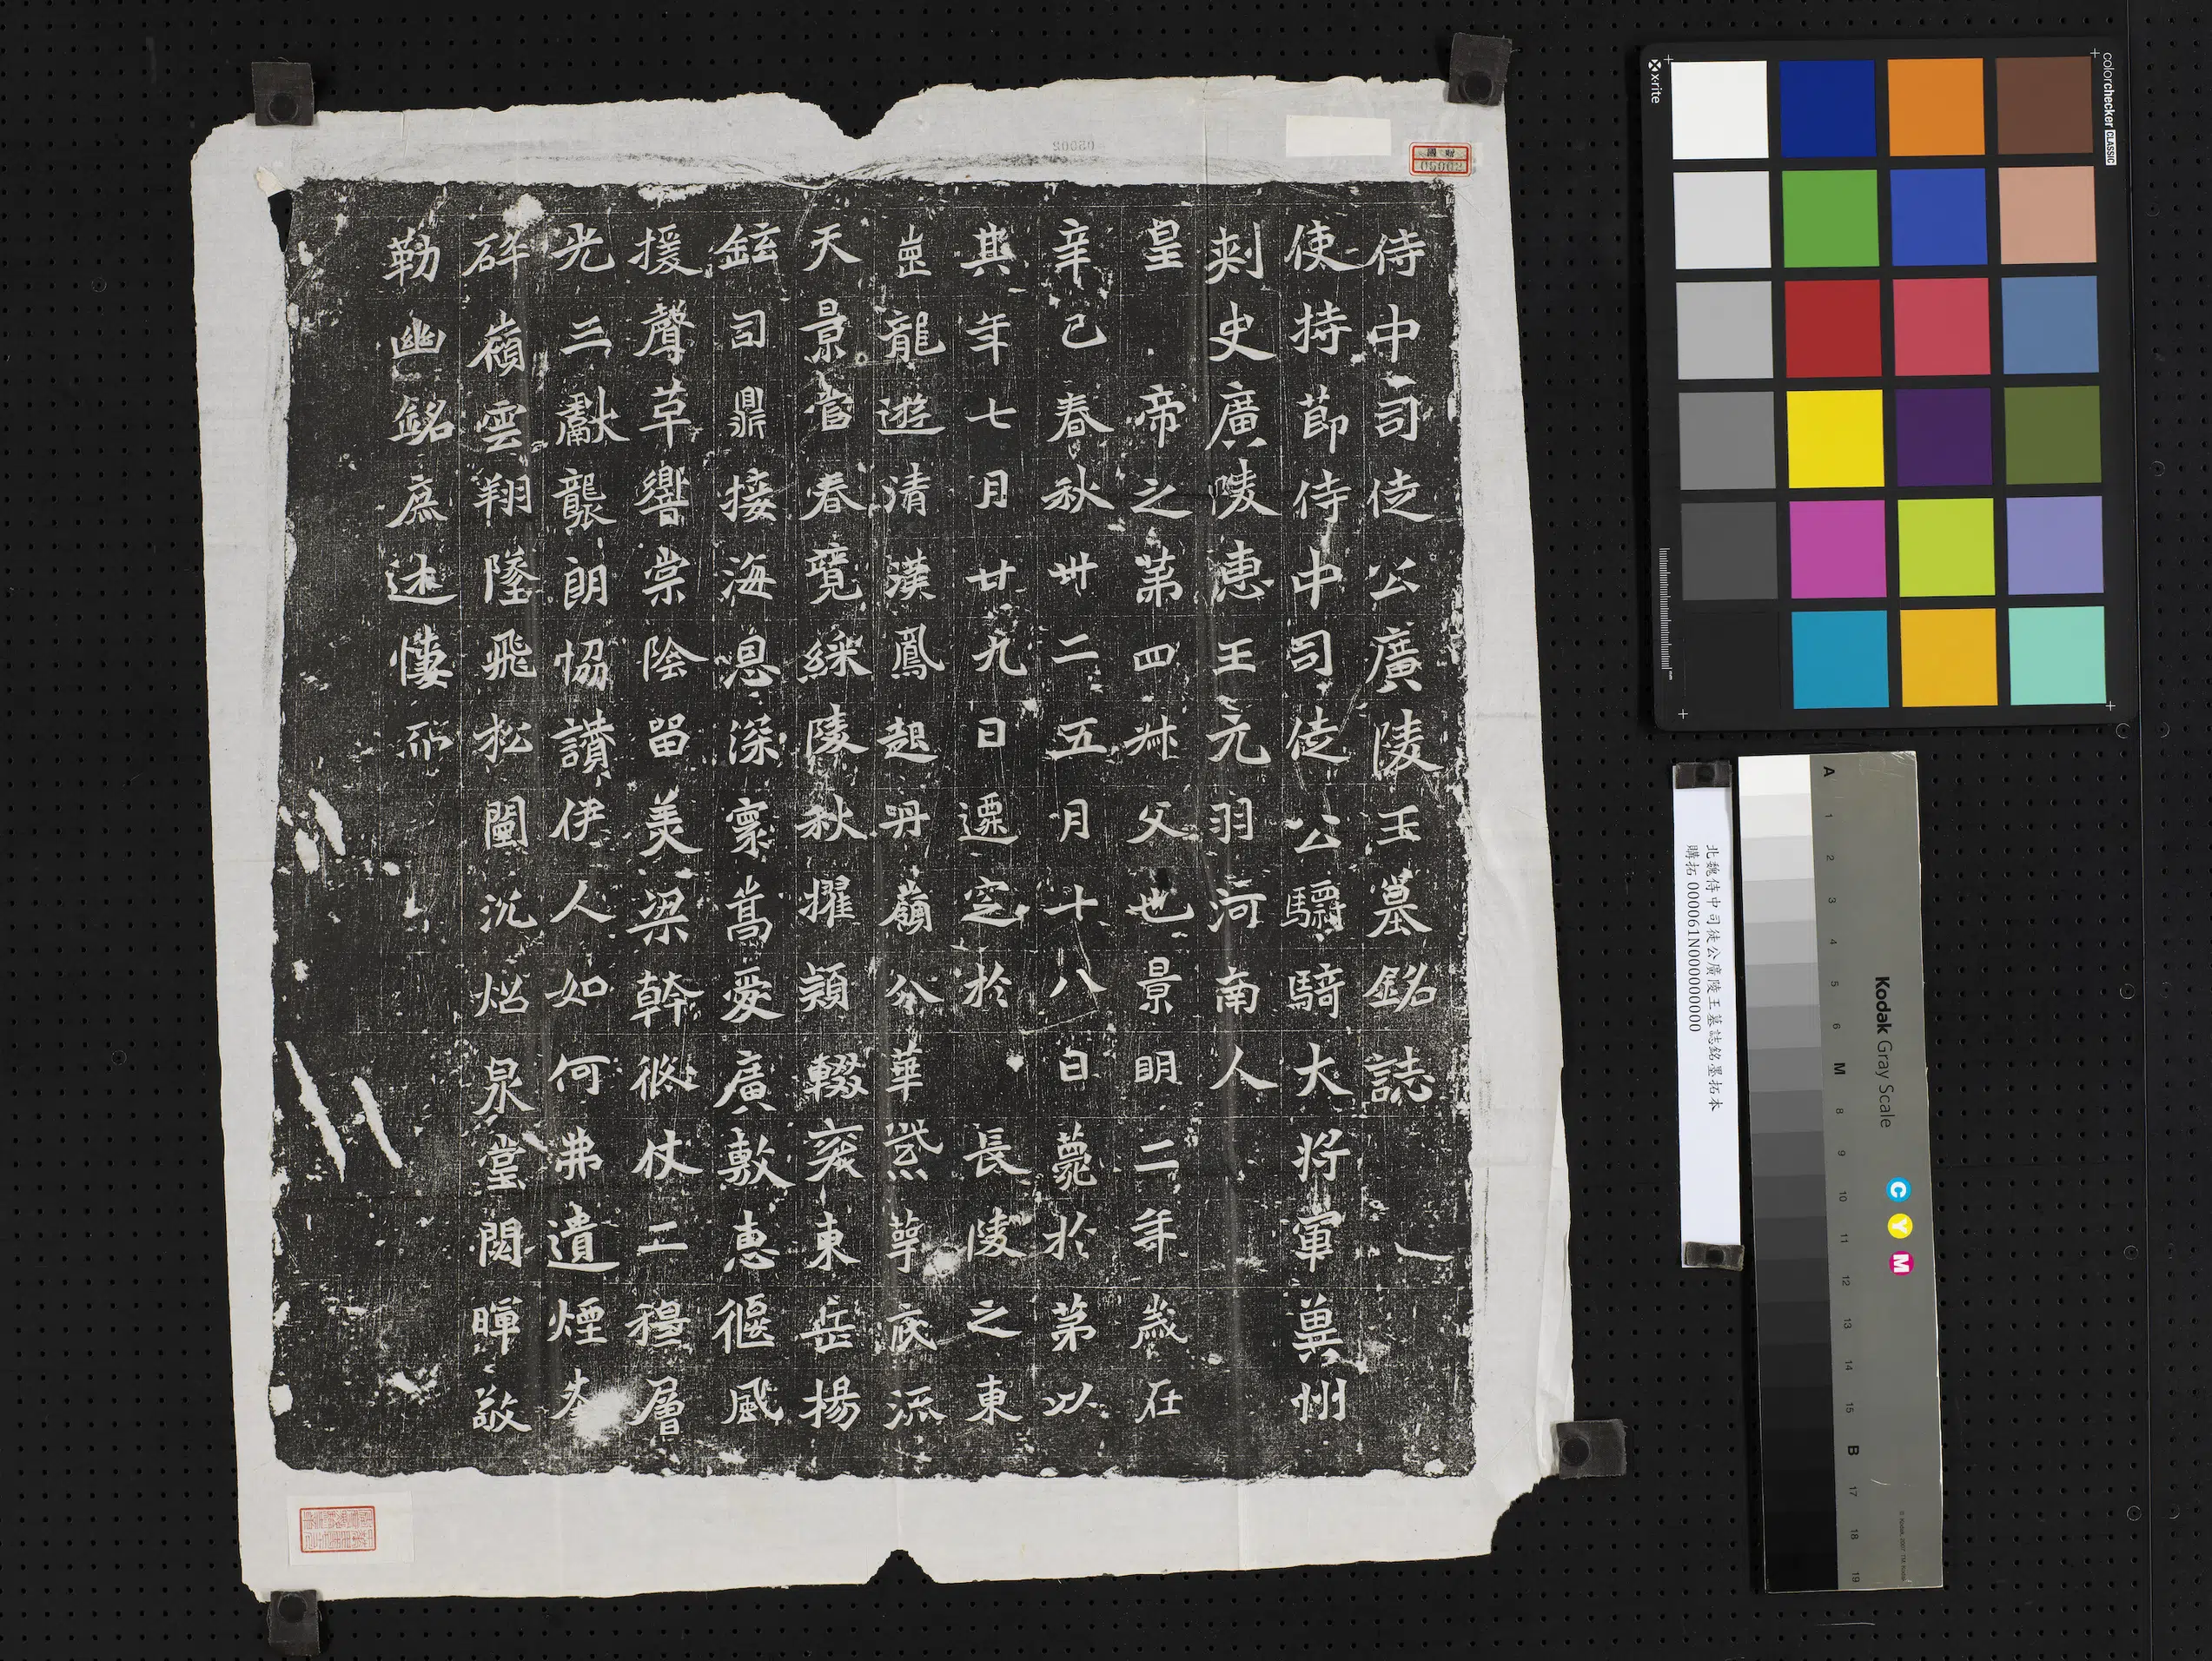 侍中司徒公廣陵王墓銘誌
使持節侍中司徒公驃騎大將軍冀州
刺史廣陵惠王元羽河南人
皇帝之第四叔父也景明二年歲在
辛巳春秋卅二五月十八日薨於第以
其年七月廿九日遷窆於長陵之東
崗龍遊清漢鳳起丹嶺分華紫萼底流
天景啻春競綵陵秋擢穎輟衮東岳揚
鉉司鼎接海息深褱嵩愛廣敷惠偃風
援聲革響棠陰留美梁幹徽仗二穆層
光三獻襲朗協讚伊人如何弗遺煙岑
碎嶺雲翔墜飛松闥沉炤泉堂閟暉敬
勒幽銘庶述悽而
05002
國財
05002
x-rite
colorchecker CLASSIC
mm
北魏侍中司徒公廣陵王墓誌銘墨拓本
購拓 000061N000000000
Kodak Gray Scale
C Y M
A 1 2 3 4 5 6 M 8 9 10 11 12 13 14 15 B 17 18 19